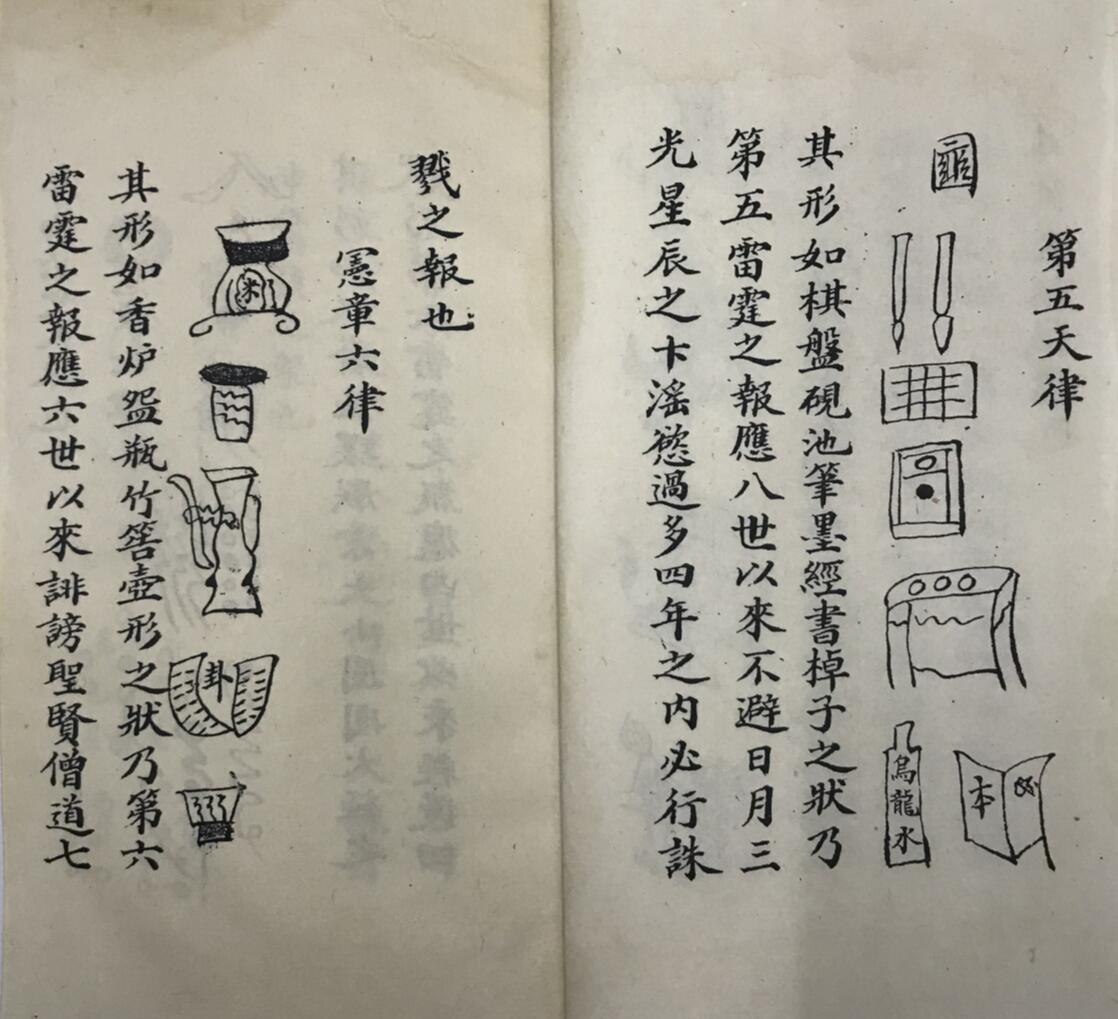 第五天律
烏龍水
本
其形如棋盤硯池筆墨經書棹子之狀乃
第五雷霆之報應八世以來不避日月三
光星辰之下滛慾過多四年之内必行誅
戮之報也
憲章六律
卦
其形如香炉盌瓶竹筶壺形之狀乃第六
雷霆之報應六世以來誹謗聖賢僧道七